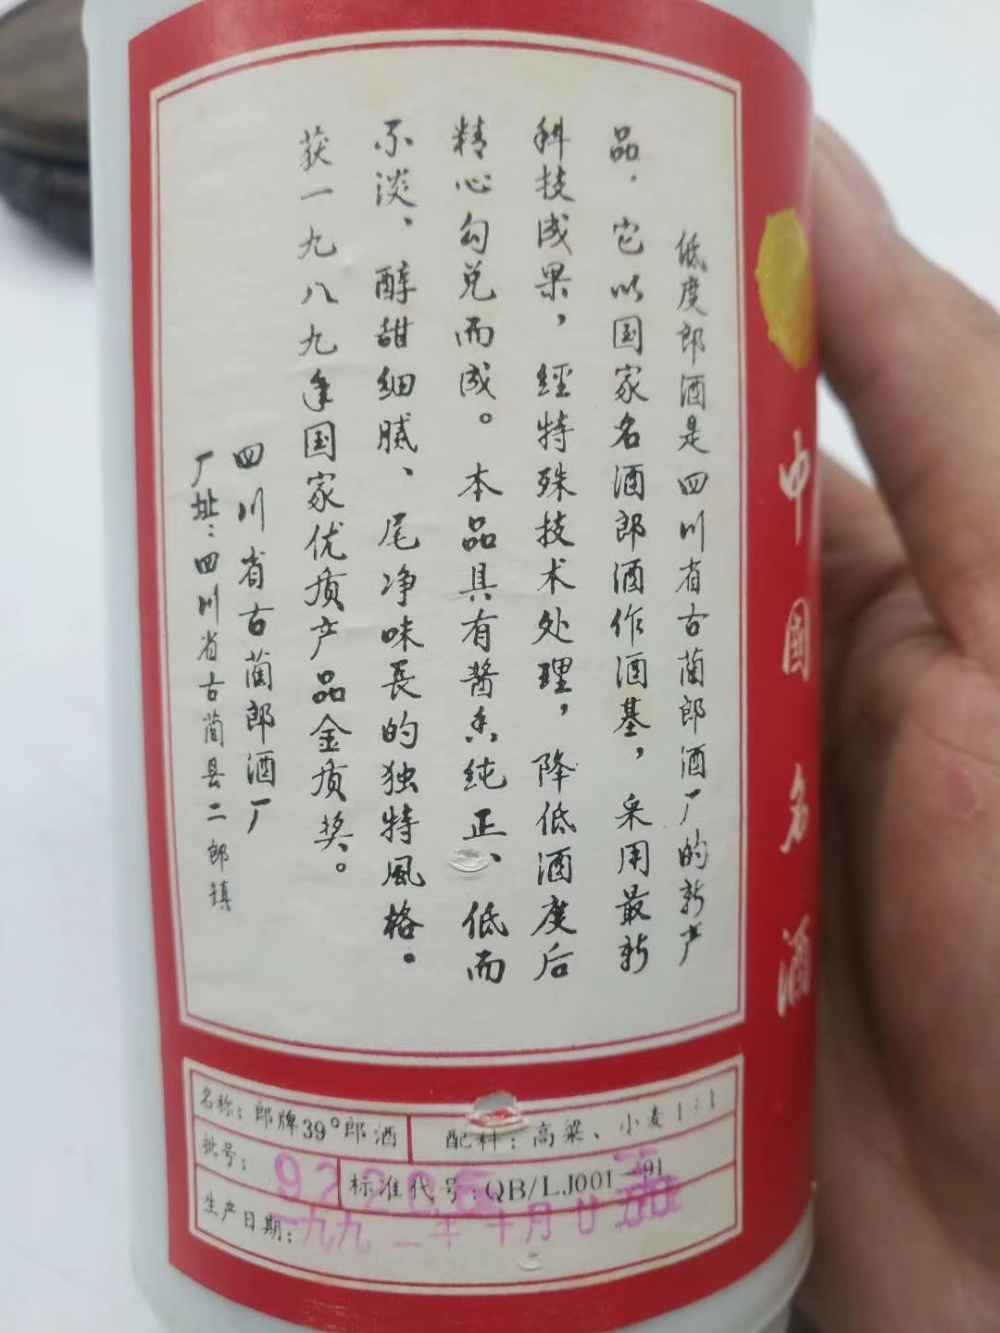 低度郎酒是四川省古蔺郎酒厂的新产
品．它以国家名酒郎酒作酒基，采用最新
科技成果，经特殊技术处理，降低酒度后
精心勾兑而成。本品具有酱香纯正、低而
不淡、醇甜细腻、尾净味長的独特風格。
获一九八九年国家优质产品金质奖。
四川省古蔺郎酒厂
厂址：四川省古蔺县二郎镇
中国名酒
名称：郎牌39°郎酒
配料：高粱、小麦1:1
批号：
标准代号：QB/LJ001—91
生产日期：一九九二年十月廿